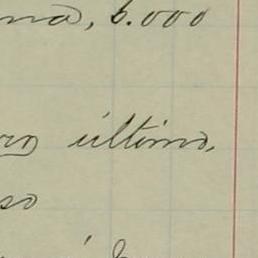 na, 6.000
ro último,
so